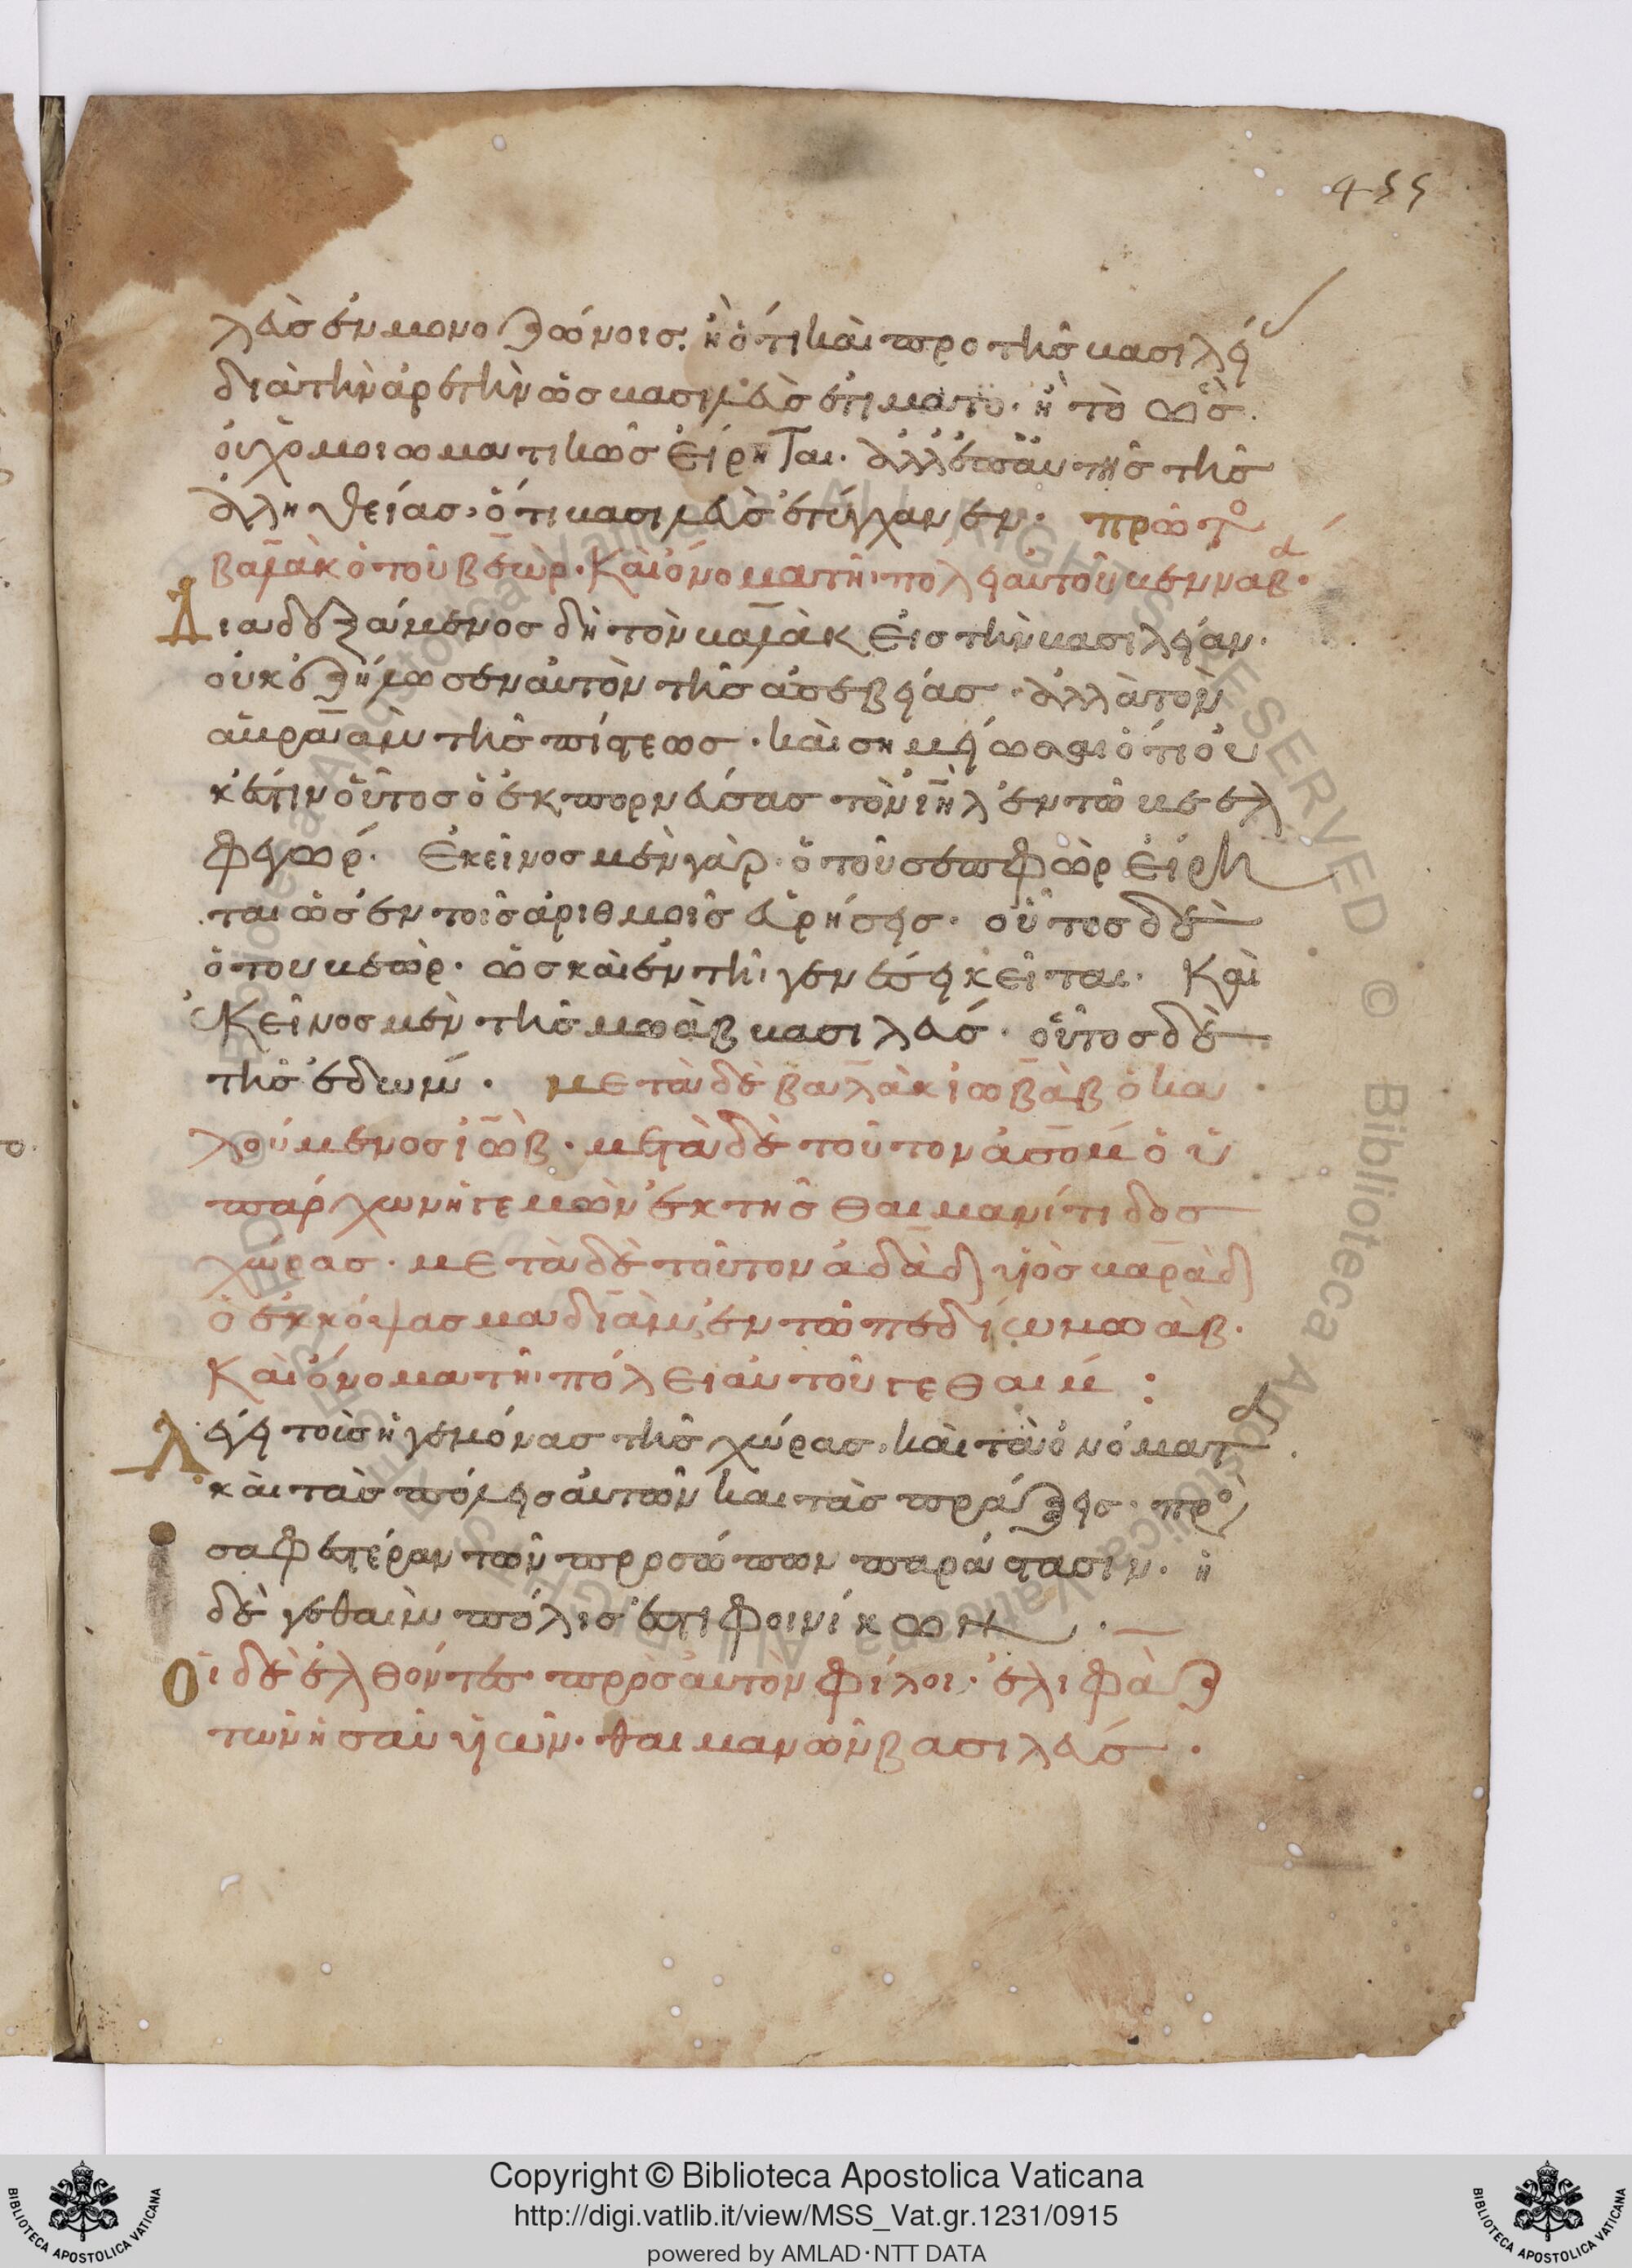 455
λεὺς ἐν μονοζώνοις. ἢ ὅτι καὶ προ τῆς βασιλεί
διὰ τὴν ἀρετὴν ὡς βασιλεὺς ἐτιμᾶτο. ἢ τὸ ὡς.
οὐχ ὁμοιωματικῶς εἴρηται. ἀλλ' ἐπ' αὐτῆς τῆς
ἀληθείας. ὅτι βασιλεὺς ἐτύγχανεν. πρῶτο
βαλὰκ ὁ τοῦ βεώρ. Καὶ ὄνομα τῆ πόλει αὐτοῦ μενναβ.
Διαδεξάμενος δὴ τὸν βαλὰκ εἰς τὴν βασιλείαν.
οὐκ ἐζήλωσεν αὐτὸν τῆς ἀσεβείας. ἀλλὰ τὸν
αβραὰμ τῆς πίστεως. καὶ σημείωσαι ὅτι οὐ
κ ἔστιν οὗτος ὁ ἐκπορνεύσας τὸν ιηλ ἐν τῶ βεελ
φεγώρ. Ἐκεῖνος μὲν γὰρ ὁ τοῦ σεπφὼρ εἴρη
ται ὡς ἐν τοῖς ἀριθμοῖς εὑρήσεις. οὗτος δὲ
ὁ του βεώρ. ὡς καὶ ἐν τῆ γενέσει κεῖται. Καὶ
ἐκεῖνος μὲν τῆς μωὰβ βασιλεύς. οὗτος δὲ
τῆς ἐδώμ. μετὰ δὲ βαλὰκ ἰωβὰβ ὁ κα
λούμενος ἰώβ. μετὰ δὲ τοῦτον ἀσόμ ὁ ὑ
πάρχων ἡγεμὼν ἐκ τῆς θαιμανίτιδος
χώρας. μετὰ δὲ τοῦτον ἀδὰδ υἱὸς βαρὰδ
ὁ ἐκκόψας μαδιὰμ ἐν τῶ πεδίω μωάβ.
Καὶ ὄνομα τῆ πόλει αὐτοῦ γεθαίμ :
Λέγει τοὺς ἡγεμόνας τῆς χώρας. καὶ τὰ ὀνόματα
καὶ τὰς πόλεις αὐτῶν και τὰς πράξεις. πρὸ
σαφεστέραν τῶν προσώπων παράστασιν. ἡ
δὲ γεθαὶμ πόλις ἐστι φοινίκων.
Οἱ δὲ ἐλθόντες πρὸς αὐτὸν φίλοι. ἐλιφὰζ
τῶν ἡσαῦ υἱῶν. θαιμανῶν βασιλεύς.
Copyright © Biblioteca Apostolica Vaticana
http://digi.vatlib.it/view/MSS_Vat.gr.1231/0915
powered by AMLAD·NTT DATA